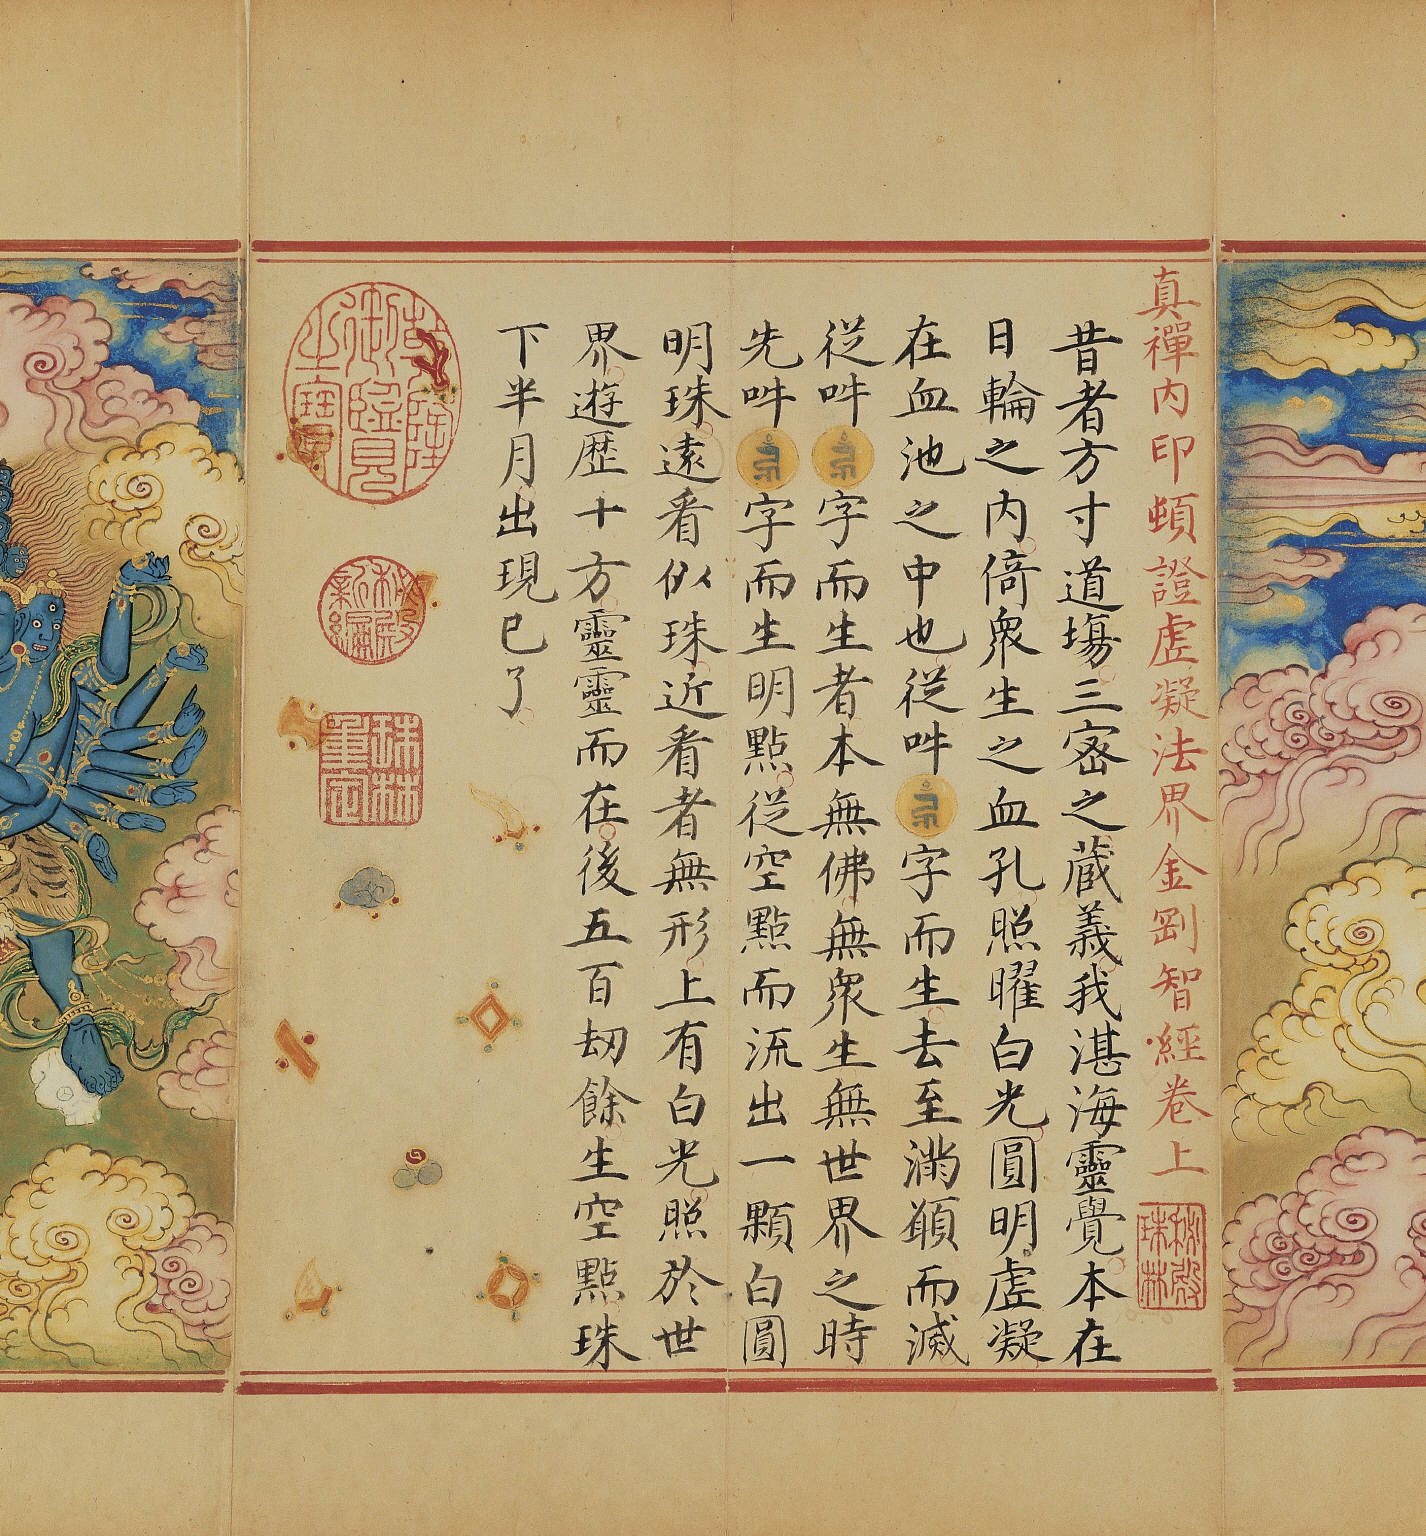 真禪內印頓證虛凝法界金剛智經卷上
秘殿珠林
昔者方寸道場三密之蔵義我湛海靈覺本在
日輪之內倚眾生之血孔照曜白光圓明虛凝
在血池之中也從吽字而生去至滿頞而滅
從吽字而生者本無佛無眾生無世界之時
先吽字而生明點從空點而流出一顆白圓
明珠遠看似珠近看者無形上有白光照於世
界遊歷十方靈靈而在後五百刼餘生空點珠
下半月出現已了
乾隆御覽之寶
秘殿新編
珠林重定